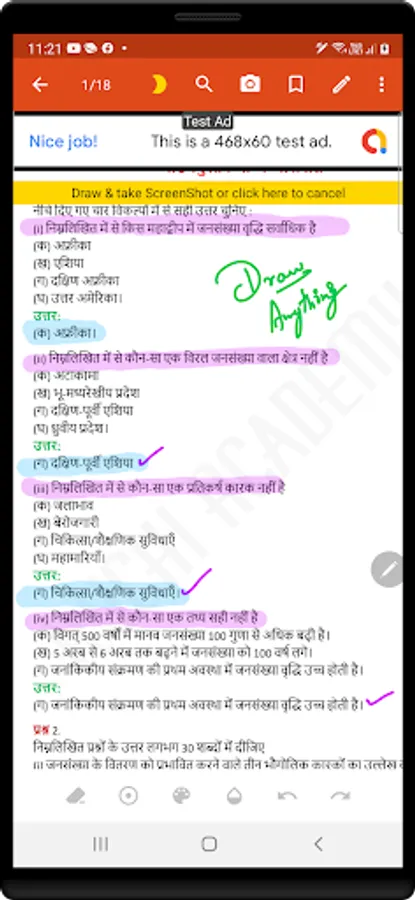 11:21
1/18
Test Ad
Nice job! This is a 468x60 test ad.
Draw & take ScreenShot or click here to cancel
नीचे दिए गए चार विकल्पों में से सही उत्तर चुनिए :
(i) निम्नलिखित में से किस महाद्वीप में जनसंख्या वृद्धि सर्वाधिक है
(क) अफ्रीका
(ख) एशिया
(ग) दक्षिण अफ्रीका
(घ) उत्तर अमेरिका।
Draw
Anything
उत्तर:
(क) अफ्रीका।
(ii) निम्नलिखित में से कौन-सा एक विरल जनसंख्या वाला क्षेत्र नहीं है
(क) अटाकामा
(ख) भू-मध्यरेखीय प्रदेश
(ग) दक्षिण-पूर्वी एशिया
(घ) ध्रुवीय प्रदेश।
उत्तर:
(ग) दक्षिण-पूर्वी एशिया
(iii) निम्नलिखित में से कौन-सा एक प्रतिकर्ष कारक नहीं है
(क) जलाभाव
(ख) बेरोजगारी
(ग) चिकित्सा/शैक्षणिक सुविधाएँ
(घ) महामारियाँ।
उत्तर:
(ग) चिकित्सा/शैक्षणिक सुविधाएँ।
(iv) निम्नलिखित में से कौन-सा एक तथ्य सही नहीं है
(क) विगत् 500 वर्षों में मानव जनसंख्या 100 गुणा से अधिक बढ़ी है।
(ख) 5 अरब से 6 अरब तक बढ़ने में जनसंख्या को 100 वर्ष लगे।
(ग) जनांकिकीय संक्रमण की प्रथम अवस्था में जनसंख्या वृद्धि उच्च होती है।
उत्तर:
(ग) जनांकिकीय संक्रमण की प्रथम अवस्था में जनसंख्या वृद्धि उच्च होती है।
प्रश्न 2.
निम्नलिखित प्रश्नों के उत्तर लगभग 30 शब्दों में दीजिए
जनसंख्या के वितरण को प्रभावित करने वाले तीन भौगोलिक कारकों का उल्लेख